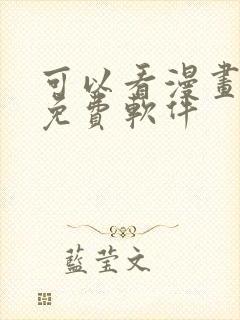 可以看漫畫
免費軟件
藍瑩文